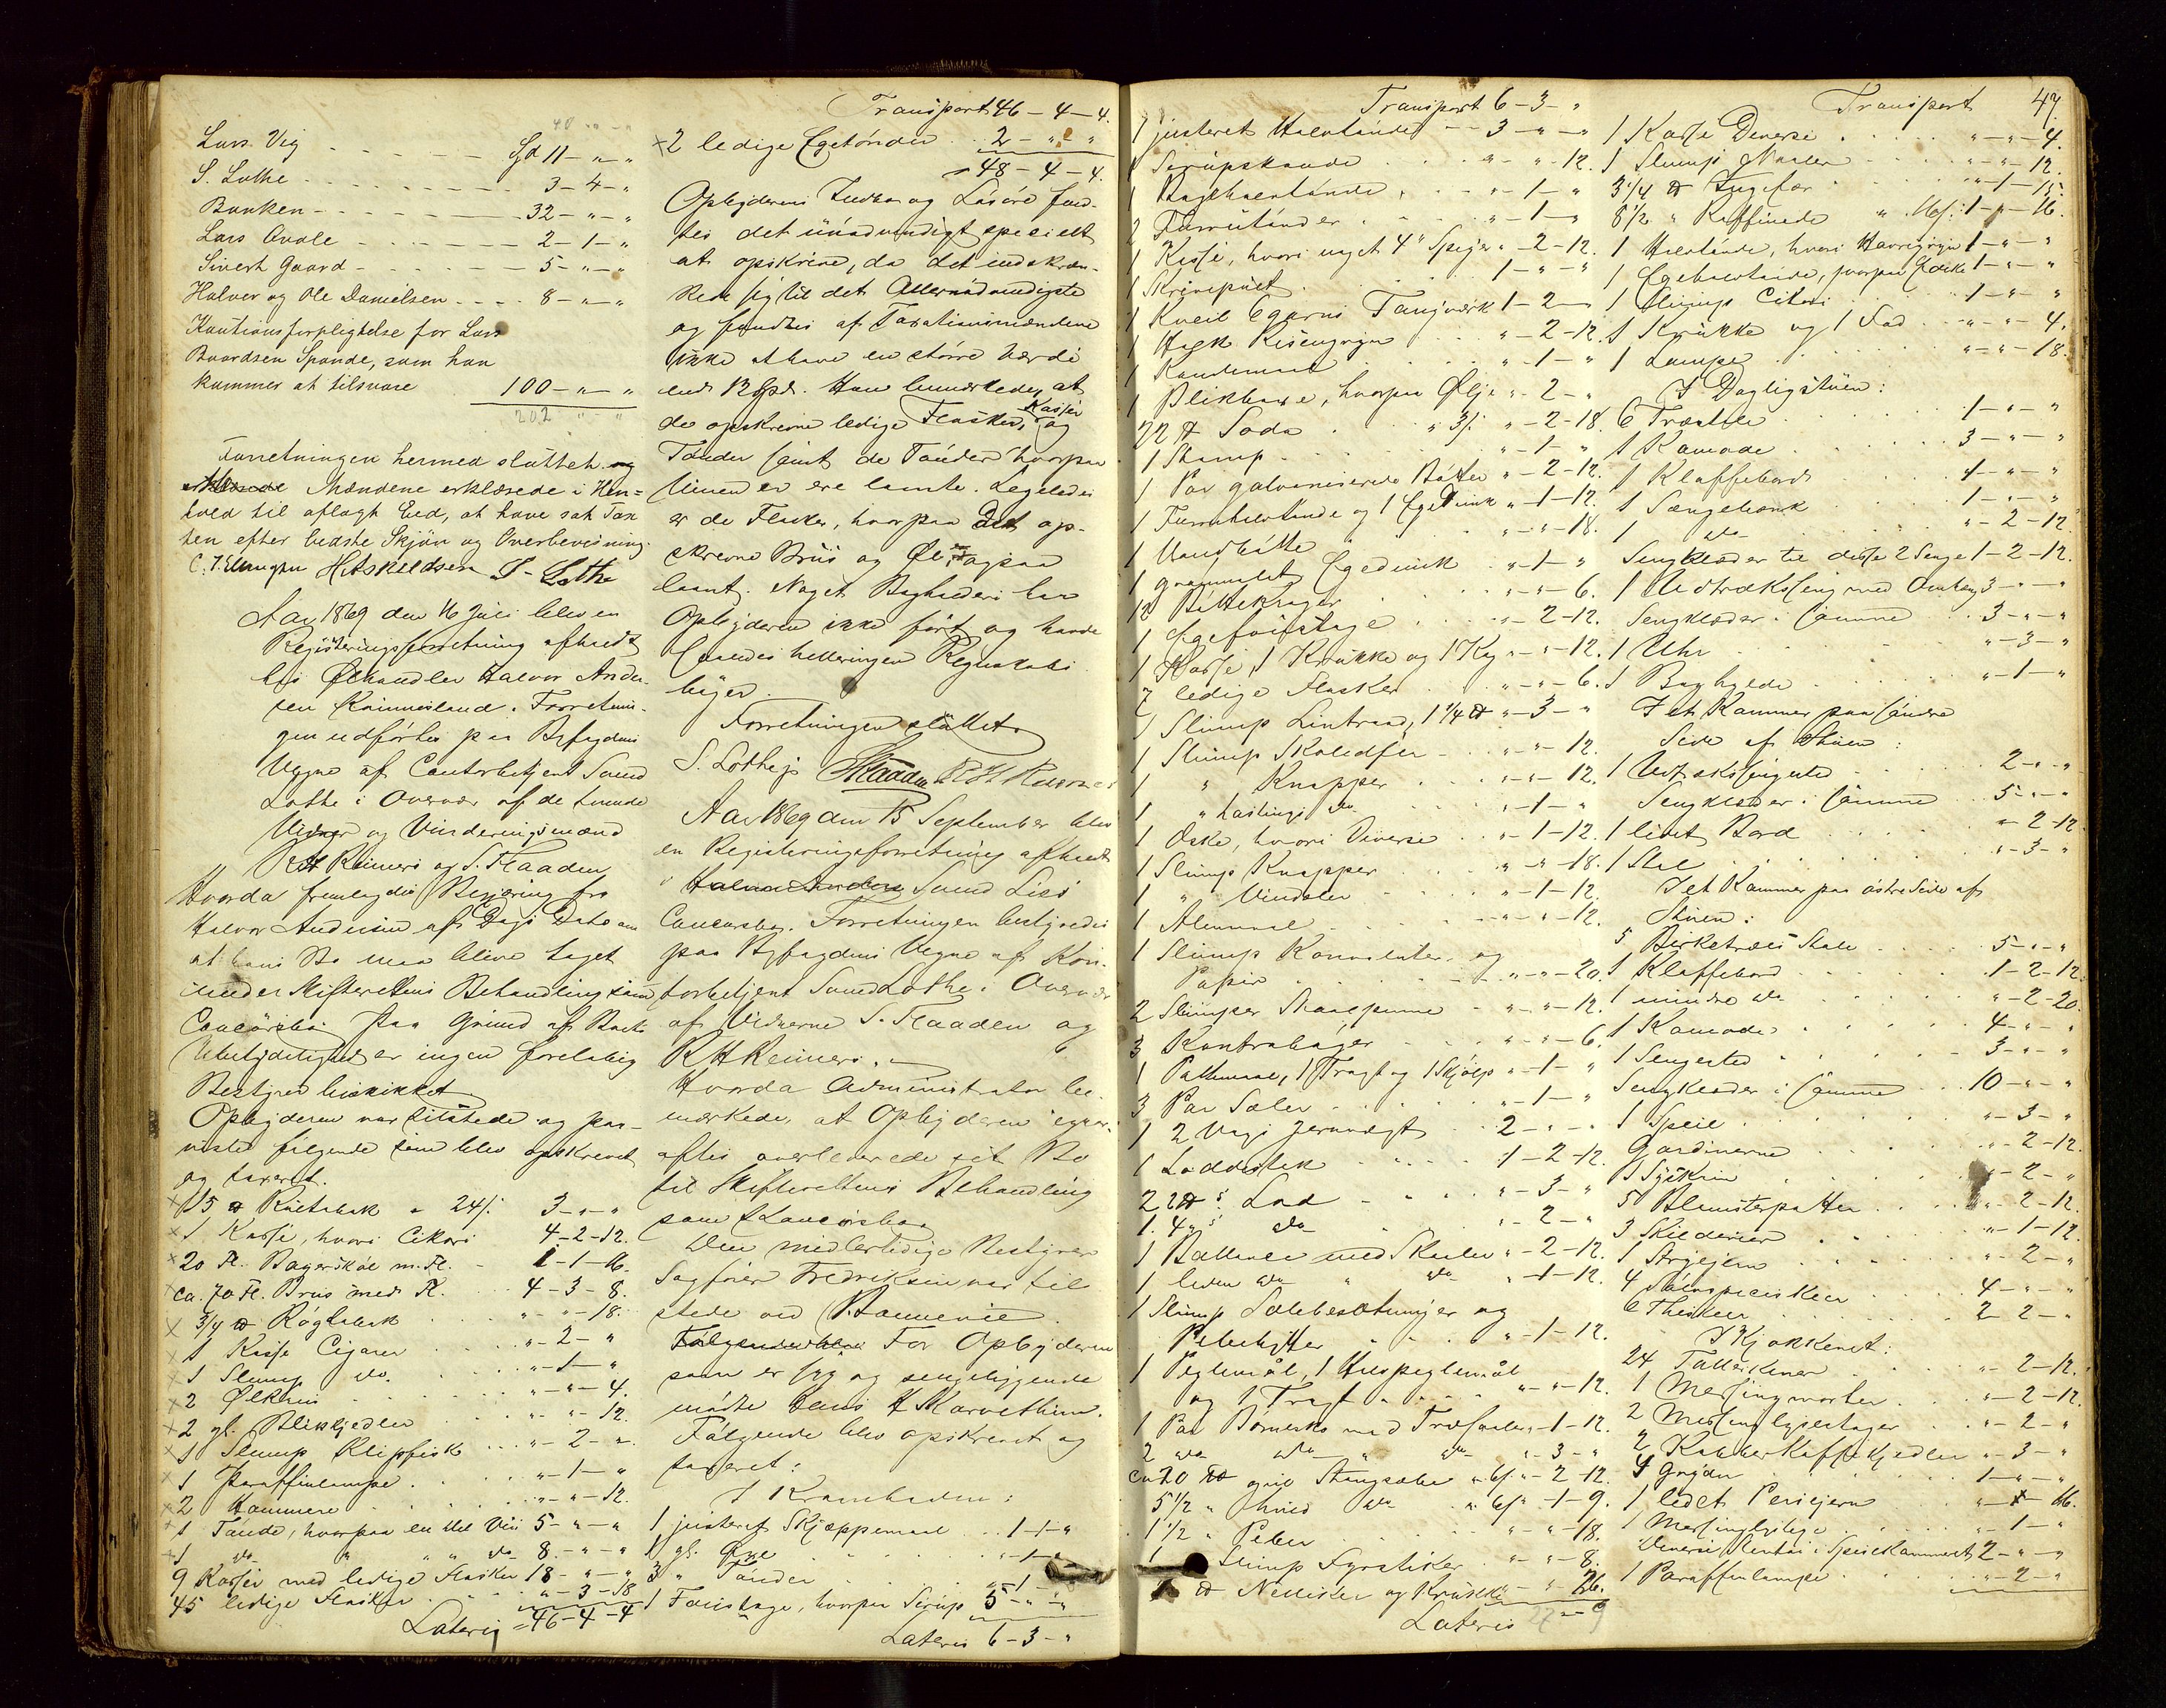 Lars Vig - - - - - Spd 11 - " - "
S. Lothe - - - - - 3 - 4 - "
Banken - - - - - 32 - " - "
Lars Avale - - - - - 2 - 1 - "
Sivert Gaard - - - - - 5 - " - "
Halvor og Ole Danielsen - - - - 8 - " - "
Kautionsforpligtelse for Lars
Baardsen Spande, som han
kommer at tilsvare 100 - " - "
202 " "
Forretningen hermed sluttet og
Mændene erklærede i Hen=
hold til aflagt Eed, at have sat Tax
ten efter bedste Skjøn og Overbevisning.
H. Askeldsen S. Lothe
Aar 1869 den 16 Juli blev en
Registreringsforretning afholdt
hos Ølhandler Halvor Ander-
sen Forretnin-
gen udførtes paa Byfogdens
Vegne af Contorbetjent Svend
Lothe i Overvær af de tvende
Vidner og Vurderingsmænd
R H Reimers og S. Haaden
Hvorda fremlagdes Begjæring fra
Halvor Andersen af Dags Dato om
at hans Bo maa blive taget
under Skifterettens Behandling som
Concursbo. Paa Grund af Boets
Ubetydelighed er ingen foreløbig
Bestyrer beskikket
Opbyderen var tilstede og paa-
viste følgende som blev opskrevet
og taxeret.
15 ℔ Rultobak a 24/. 3 - " - "
1 Kasse, hvori Cikori 4 - 2 - 12.
20 Fl. Bayerskøl m. Fl. - 1 - 1 - 16.
ca. 70 Fl. Brus med Fl. 4 - 3 - 8.
3/4 ℔ Røgtobak " - " - 18.
1 Kasse Cigarer " - 2 - "
1 Slump do. " - 1 - "
2 Ølkrus " - " - 4.
2 gl. Blikkjedler " - " - 12.
1 Slump Klipfisk " - 2 - "
1 Paraffinlampe " - 1 - "
2 Hammere " - " - 12.
1 Tønde, hvorpaa en Del Viin 5 - " - "
1 do " " " do 8. - " - "
9 Kasser med ledige Flasker 18 - " - "
45 ledige Flasker " - 3 - 18
Lateris = 46 - 4 - 4
Transport 46 - 4 - 4.
2 ledige Egetønder 2 - " - "
48 - 4 - 4.
Opbyderens Indbo og Løsøre fand-
tes det unødvendigt specielt
at opskrive, da det indskræn-
kede sig til det Allernødvendigste
og fandtes af Taxationsmændene
ikke at have en større Værdi
end 13 Spd. Han bemærkede, at
de opskrevne ledige Flasker, Kasser og
Tønder samt de Tønder hvorpaa
Vinen er ere laante. Ligeledes
er de Flasker, hvorpaa det op-
skrevne Brus og Øl er ogsaa
laant. Noget Baghandleri har
Opbyderen ikke ført og havde
saaledes heller ingen Regnskabs
bøger.
Forretningen sluttet.
S. Lothe SHaaden R H Reimers
Aar 1869 den 13 September blev
en Registreringsforretning afholdt
i Halvor Anders Svend Liss
Concursbo. Forretningen bestyredes
paa Byfogdens Vegne af Kon-
torbetjent Svend Lothe i Overvær
af Vidnerne S. Haaden og
R H Reimers. -
Hvorda Administrator be-
mærkede, at Opbyderen igaar
aftes overleverede sit Bo
til Skifterettens Behandling
som Concursbo
Den midlertidige Bestyrer
Sagfører Fredriksen var til
stede ved
Følgende blev For Opbyderen
som er syg og sengeliggende
mødte hans
Følgende blev opskrevet og
taxeret:
I Kramboden:
1 justeret Skjæppemaal 1 - 1 - "
1 gl. Øxe " - 1 - "
3 " Tønder " - 1 - "
1 Foustage, hvorpaa Sirup 5 - " - "
Lateris 6 - 3 - "
Transport 6 - 3 - "
1 justeret Halvtønde - - 3 - " - "
1 Sirupskande " - " - 12.
1 Baghalvtønde " - 1 - "
2 Furrutønder " - 1 - "
1 Kasse, hvori noget 4" Spiger " - 2 - 12.
1 Skrivepult 1 - " - "
1 Kveil 6 garns Tougværk 1 - 2 -
1 Sæk Risengryn " - 2 - 12.
1 " - 1 - "
1 Blikkasse, hvorpaa Ølje " - 2 - "
22 ℔ Soda " 3/. " - 2 - 18.
1 Stamp " - 1 - "
1 Par galvaniserede Bøtter " - 2 - 12.
1 Furruhalvtønde og 1 Egedunk " - 1 - 12.
1 Vandbøtte " - " - 18.
1 gammelt Egedunk " - 1 - "
12 Bøttekroger " - " - 6.
1 Egefoustage " - 2 - 12.
1 Kasse, 1 Krukke og 1 Kag " - " - 12.
7 ledige Flasker " - " - 6.
1 Slump Lintraad, 1 1/4 ℔ " - 3 - "
1 Slump " - " - 12.
1 " Knapper " - " - 12.
1 " Lastings do " - 1 - "
1 Æske, hvori Diverse " - 1 - 12.
1 Slump Knapper " - " - 18.
1 " " - 1 - 12.
1 Alenmaal " - " - 12.
1 Slump Konvolutter og
Papir " - " - 20.
2 Slumper Skaapinne " - " - 12.
3 Kontrabøger " - " - 6.
1 Pottemaal, 1 Tragt og 1 Skjølp " - 1 - "
3 Par Sæler " - 1 - "
1 2 Vogs Jernvægt 2 - " - "
1 Loddestok 1 - 2 - 12.
2 2 ℔s Lod " - 3 - "
1. 4 " s do " - 2 - "
1 Ballance med Skaaler " - 2 - 12.
1 liden do " do " - 1 - 12.
1 Slump Sælebesætninger og
Pibehytter " - 1 - 12.
1 Peglemål, 1 Halvpeglemål
og 1 Tragt " - " - 12.
1 Par Børnesko med Træsaaler " - 1 - 12.
2 do do " do " - 3 - "
ca 20 ℔ grøn Stangsæbe a 6/. " - 2 - 12.
5 1/2 " hvid do a 6/. " - 1 - 9.
1 1/2 " Peber " - " - 18.
1 Slump Fyrstikker " - " - 8.
1 ℔ Nelliker og Krukke " - " - 26.
Lateris 27 - " - 9
Transport 47.
1 Kasse Diverse " - " - 4.
1 Slump " - " - 12.
3 1/4 ℔ Ingefær " - 1 - 15.
8 1/2 " Raffinade " 16/. 1 - " - 16.
1 Halvtønde, hvori Havregryn 1 - " - "
1 Egehalvtønde, hvorpaa Edike 1 - " - "
1 Slump Cikori 1 - " - "
1 Krukke og 1 Fad " - " - 4.
1 Lampe " - " - 18.
I Dagligstuen:
6 Træstole 1 - " - "
1 Komode 3 - " - "
1 Klaffebord 4 - " - "
1 Sengebænk 1 - " - "
1 do " - 2 - 12.
Sengklæder til disse 2 Senge 1 - 2 - 12.
1 Udtræksseng med Omhæng 3 - " - "
Sengklæder i samme 3 - " - "
1 Uhr " - 3 - "
1 Boghylde " - 1 - "
I et Kammer paa søndre
Side af Stuen:
1 Udtrækssengested 2 - " - "
Sengklæder i samme 5 - " - "
1 lidet Bord " - 2 - 12
1 Stol " - 3 - "
I et Kammer paa østre Side af
Stuen:
5 Birketræes Stole 5 - " - "
1 Klaffebord 1 - 2 - 12
1 mindre do " - 2 - 20.
1 Komode 4 - " - "
1 Sengested 3 - " - "
Sengklæder i samme 10 - " - "
1 Speil " - 3 - "
Gardinerne " - 2 - 12.
1 Syskrin " - 2 - "
5 Blomsterpotter " - 2 - 12.
3 Skilderier " - 1 - 12.
1 Strygejern " - 2 - "
4 Sølvspiseskeer 4 - " - "
6 Theskeer 2 2 - "
I Kjøkkenet:
24 Tallerkener " - 2 - 12.
1 Messingmorter " - 2 - 12.
2 Messinglysestager " - 2 - "
2 Kobberkaffekjedler " - 3 - "
4 Gryder 1 - " - "
1 " - 1 - 16.
1 " - 1 - "
Diverse Stentøi i Spisekammeret 2 - " - "
1 Paraffinlampe " - 2 - "